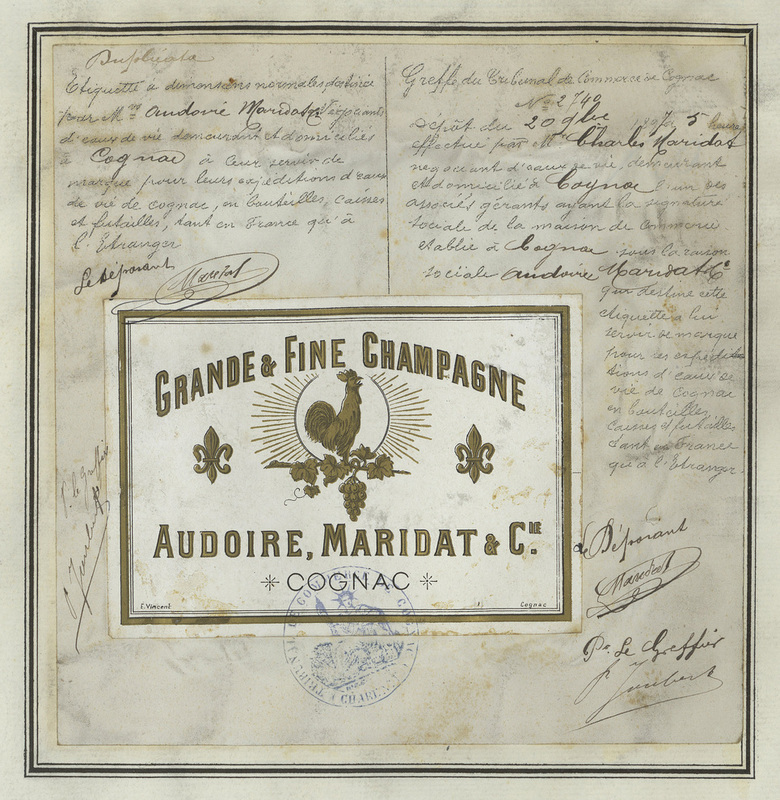 Duplicata
Etiquette à dimensions normales destinée
par M.rs Audoire Maridat & Cie négociants
d'eaux de vie demeurant et domiciliés
à Cognac à leur servir de
marque pour leurs expéditions d'eaux
de vie de cognac, en bouteilles, caisses
et futailles, tant en France qu'à
l'Etranger
Le Déposant Maridat
Greffe du Tribunal de Commerce de Cognac
No 2740
Dépôt du 20 9bre 5 heures
effectué par Mr Charles Maridat
négociant d'eaux de vie, demeurant
et domicilié à Cognac l'un des
associés gérants ayant la signature
sociale de la maison de commerce
établie à Cognac sous la raison
sociale Audoire Maridat & Cie
qui destine cette
étiquette à lui
servir de marque
pour ses expédi-
tions d'eaux de
vie de Cognac
en bouteilles,
caisses et futailles
tant en France
qu'à l'Etranger.
GRANDE & FINE CHAMPAGNE
AUDOIRE, MARIDAT & CIE.
COGNAC
E. Vincent
Cognac
P. le greffier
P. Joubert
Le Déposant
Maridat
Pr. Le Greffier
P. Joubert
TRIBUNAL DE COMMERCE DE COGNAC
CHARENTE